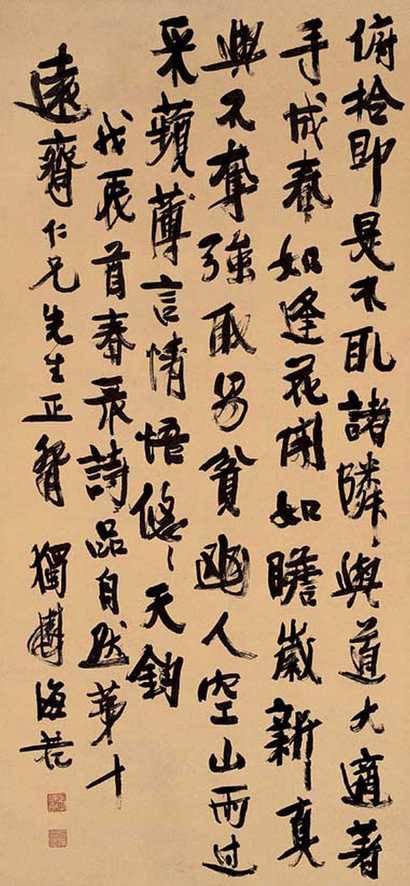 俯拾即是不取諸隣與道大適著
手成春如逢花開如瞻歲新真
與不奪強取易貧幽人空山雨过
采蘋薄言情悟悠〻天鈞
戊辰首春录詩品自然第十
遠齋仁兄先生正 獨 海